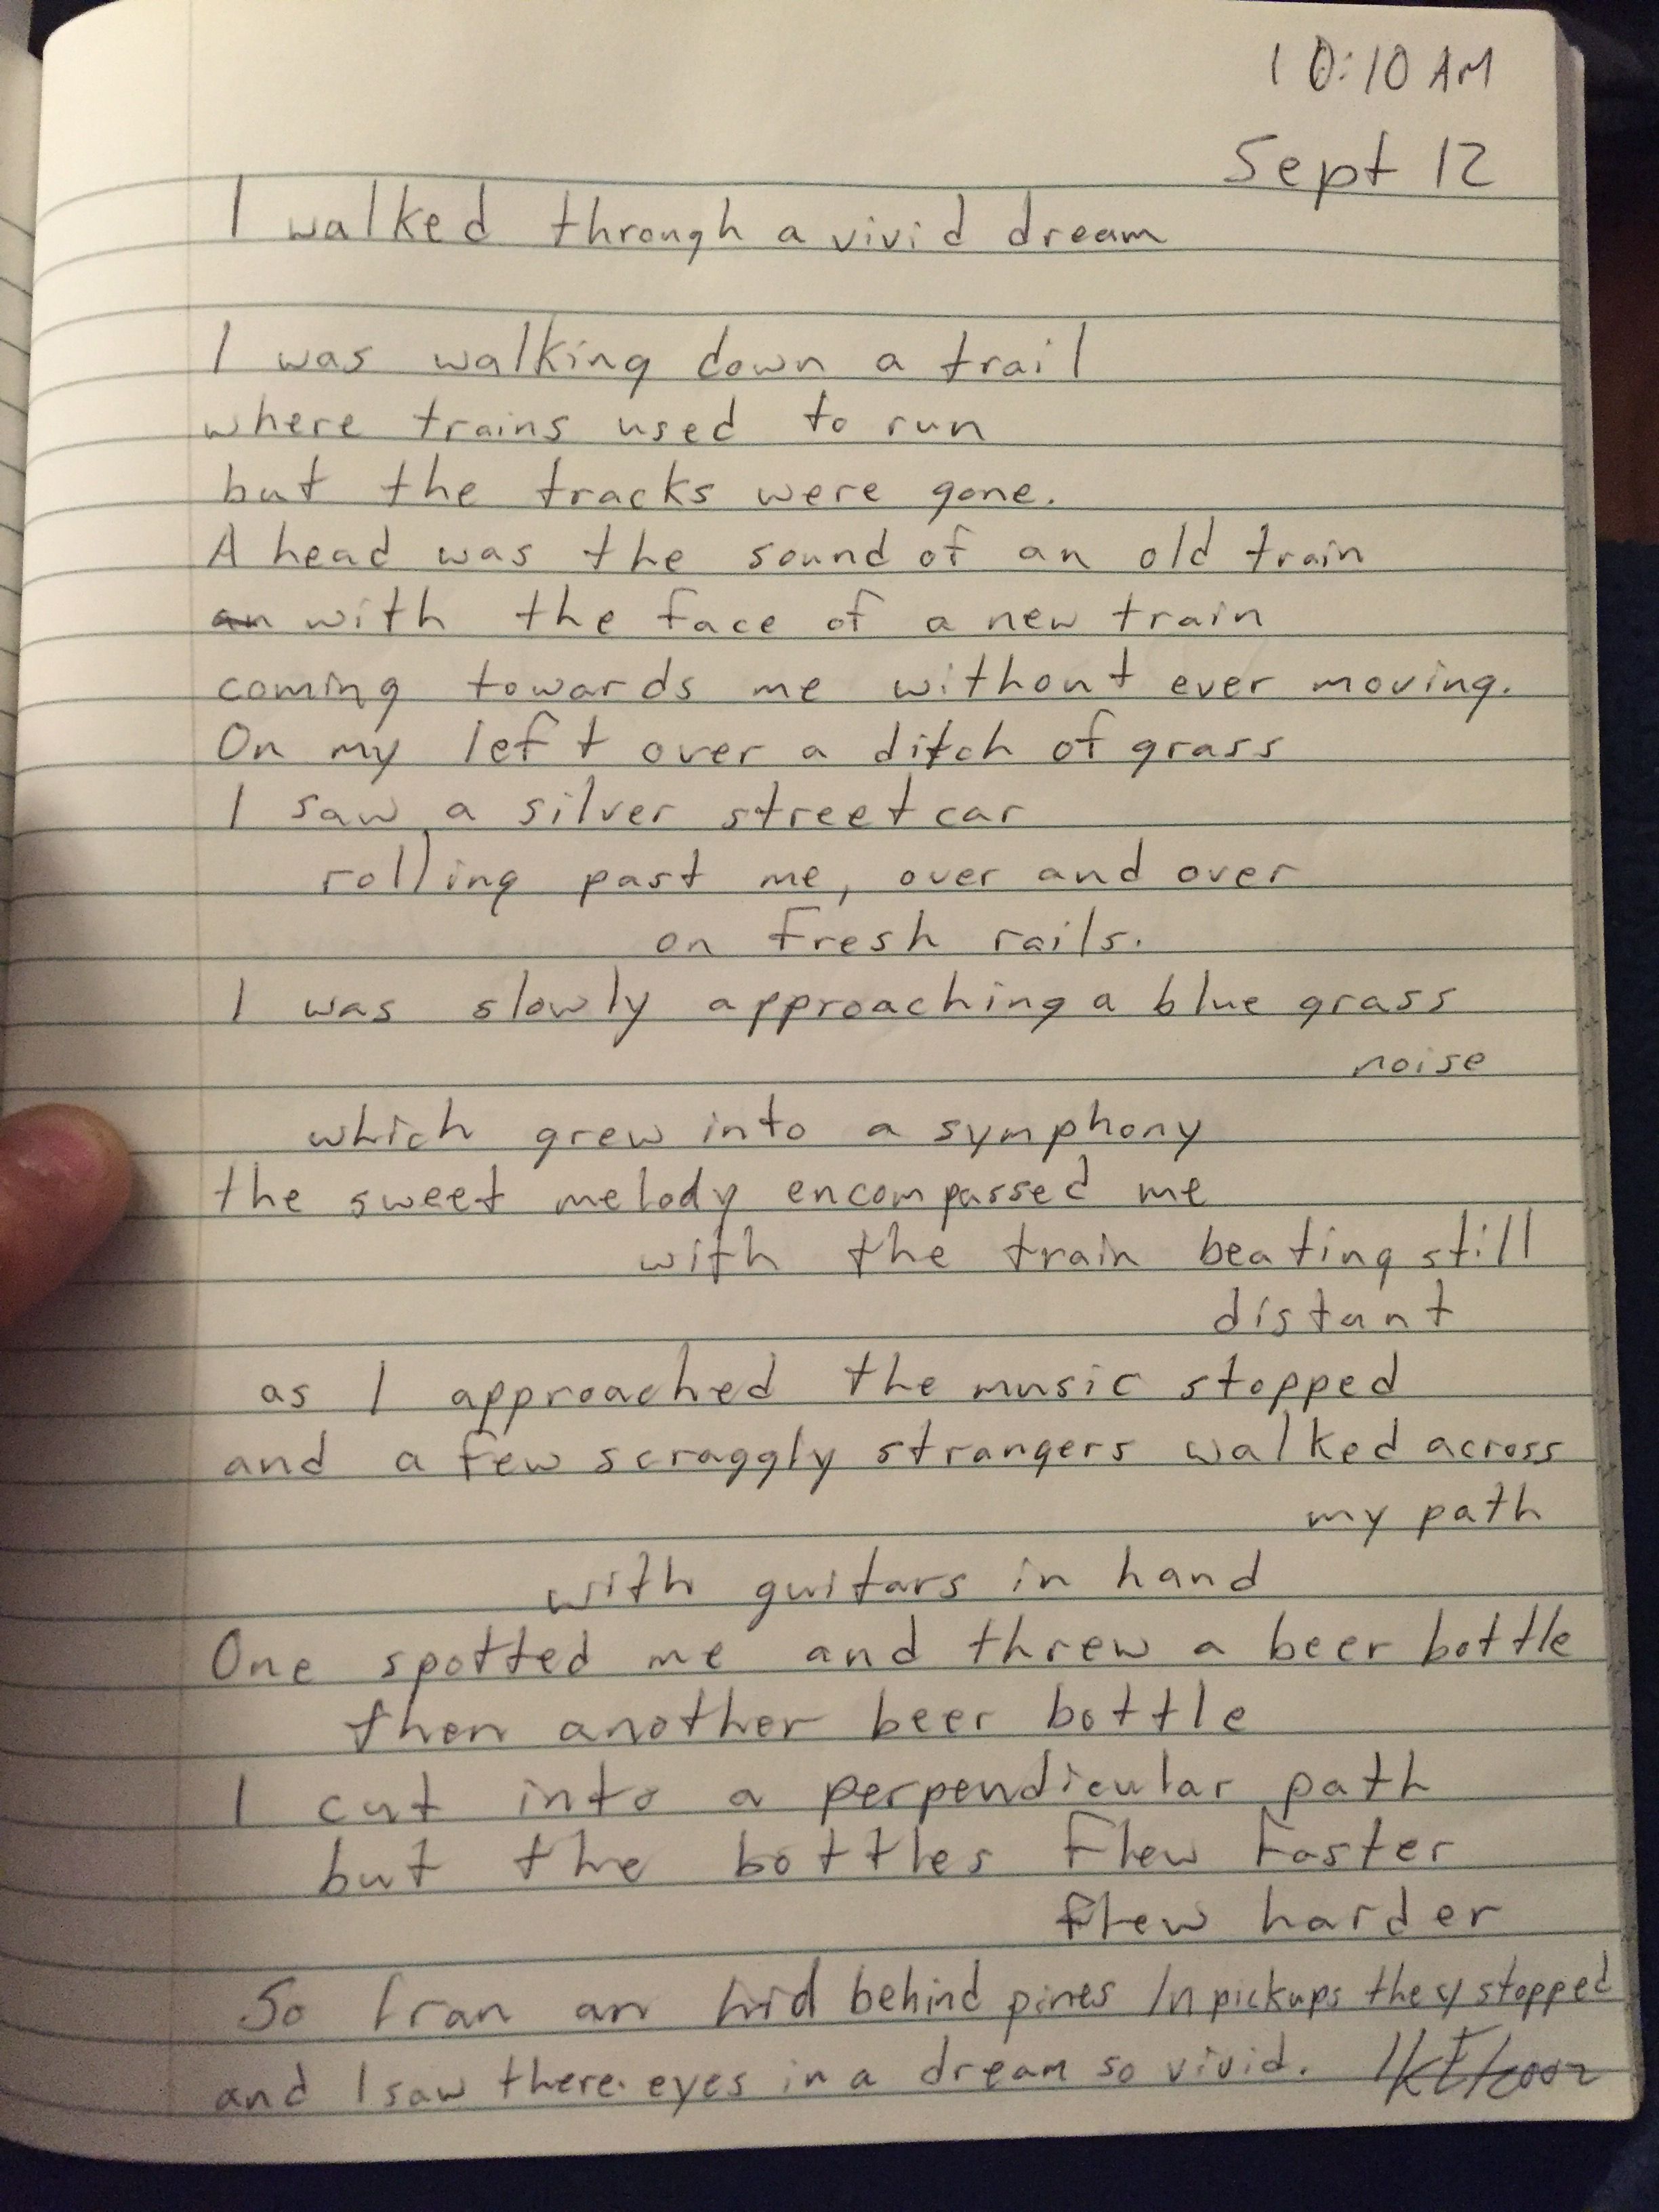 10:10 AM
Sept 12
I walked through a vivid dream
I was walking down a trail
where trains used to run
but the tracks were gone.
Ahead was the sound of an old train
an with the face of a new train
coming towards me without ever moving.
On my left over a ditch of grass
I saw a silver streetcar
rolling past me, over and over
on fresh rails.
I was slowly approaching a blue grass
noise
which grew into a symphony
the sweet melody encompassed me
with the train beating still
distant
as I approached the music stopped
and a few scraggly strangers walked across
my path
with guitars in hand
One spotted me and threw a beer bottle
then another beer bottle
I cut into a perpendicular path
but the bottles flew faster
flew harder
So I ran an hid behind pines In pickups they stopped
and I saw there eyes in a dream so vivid.